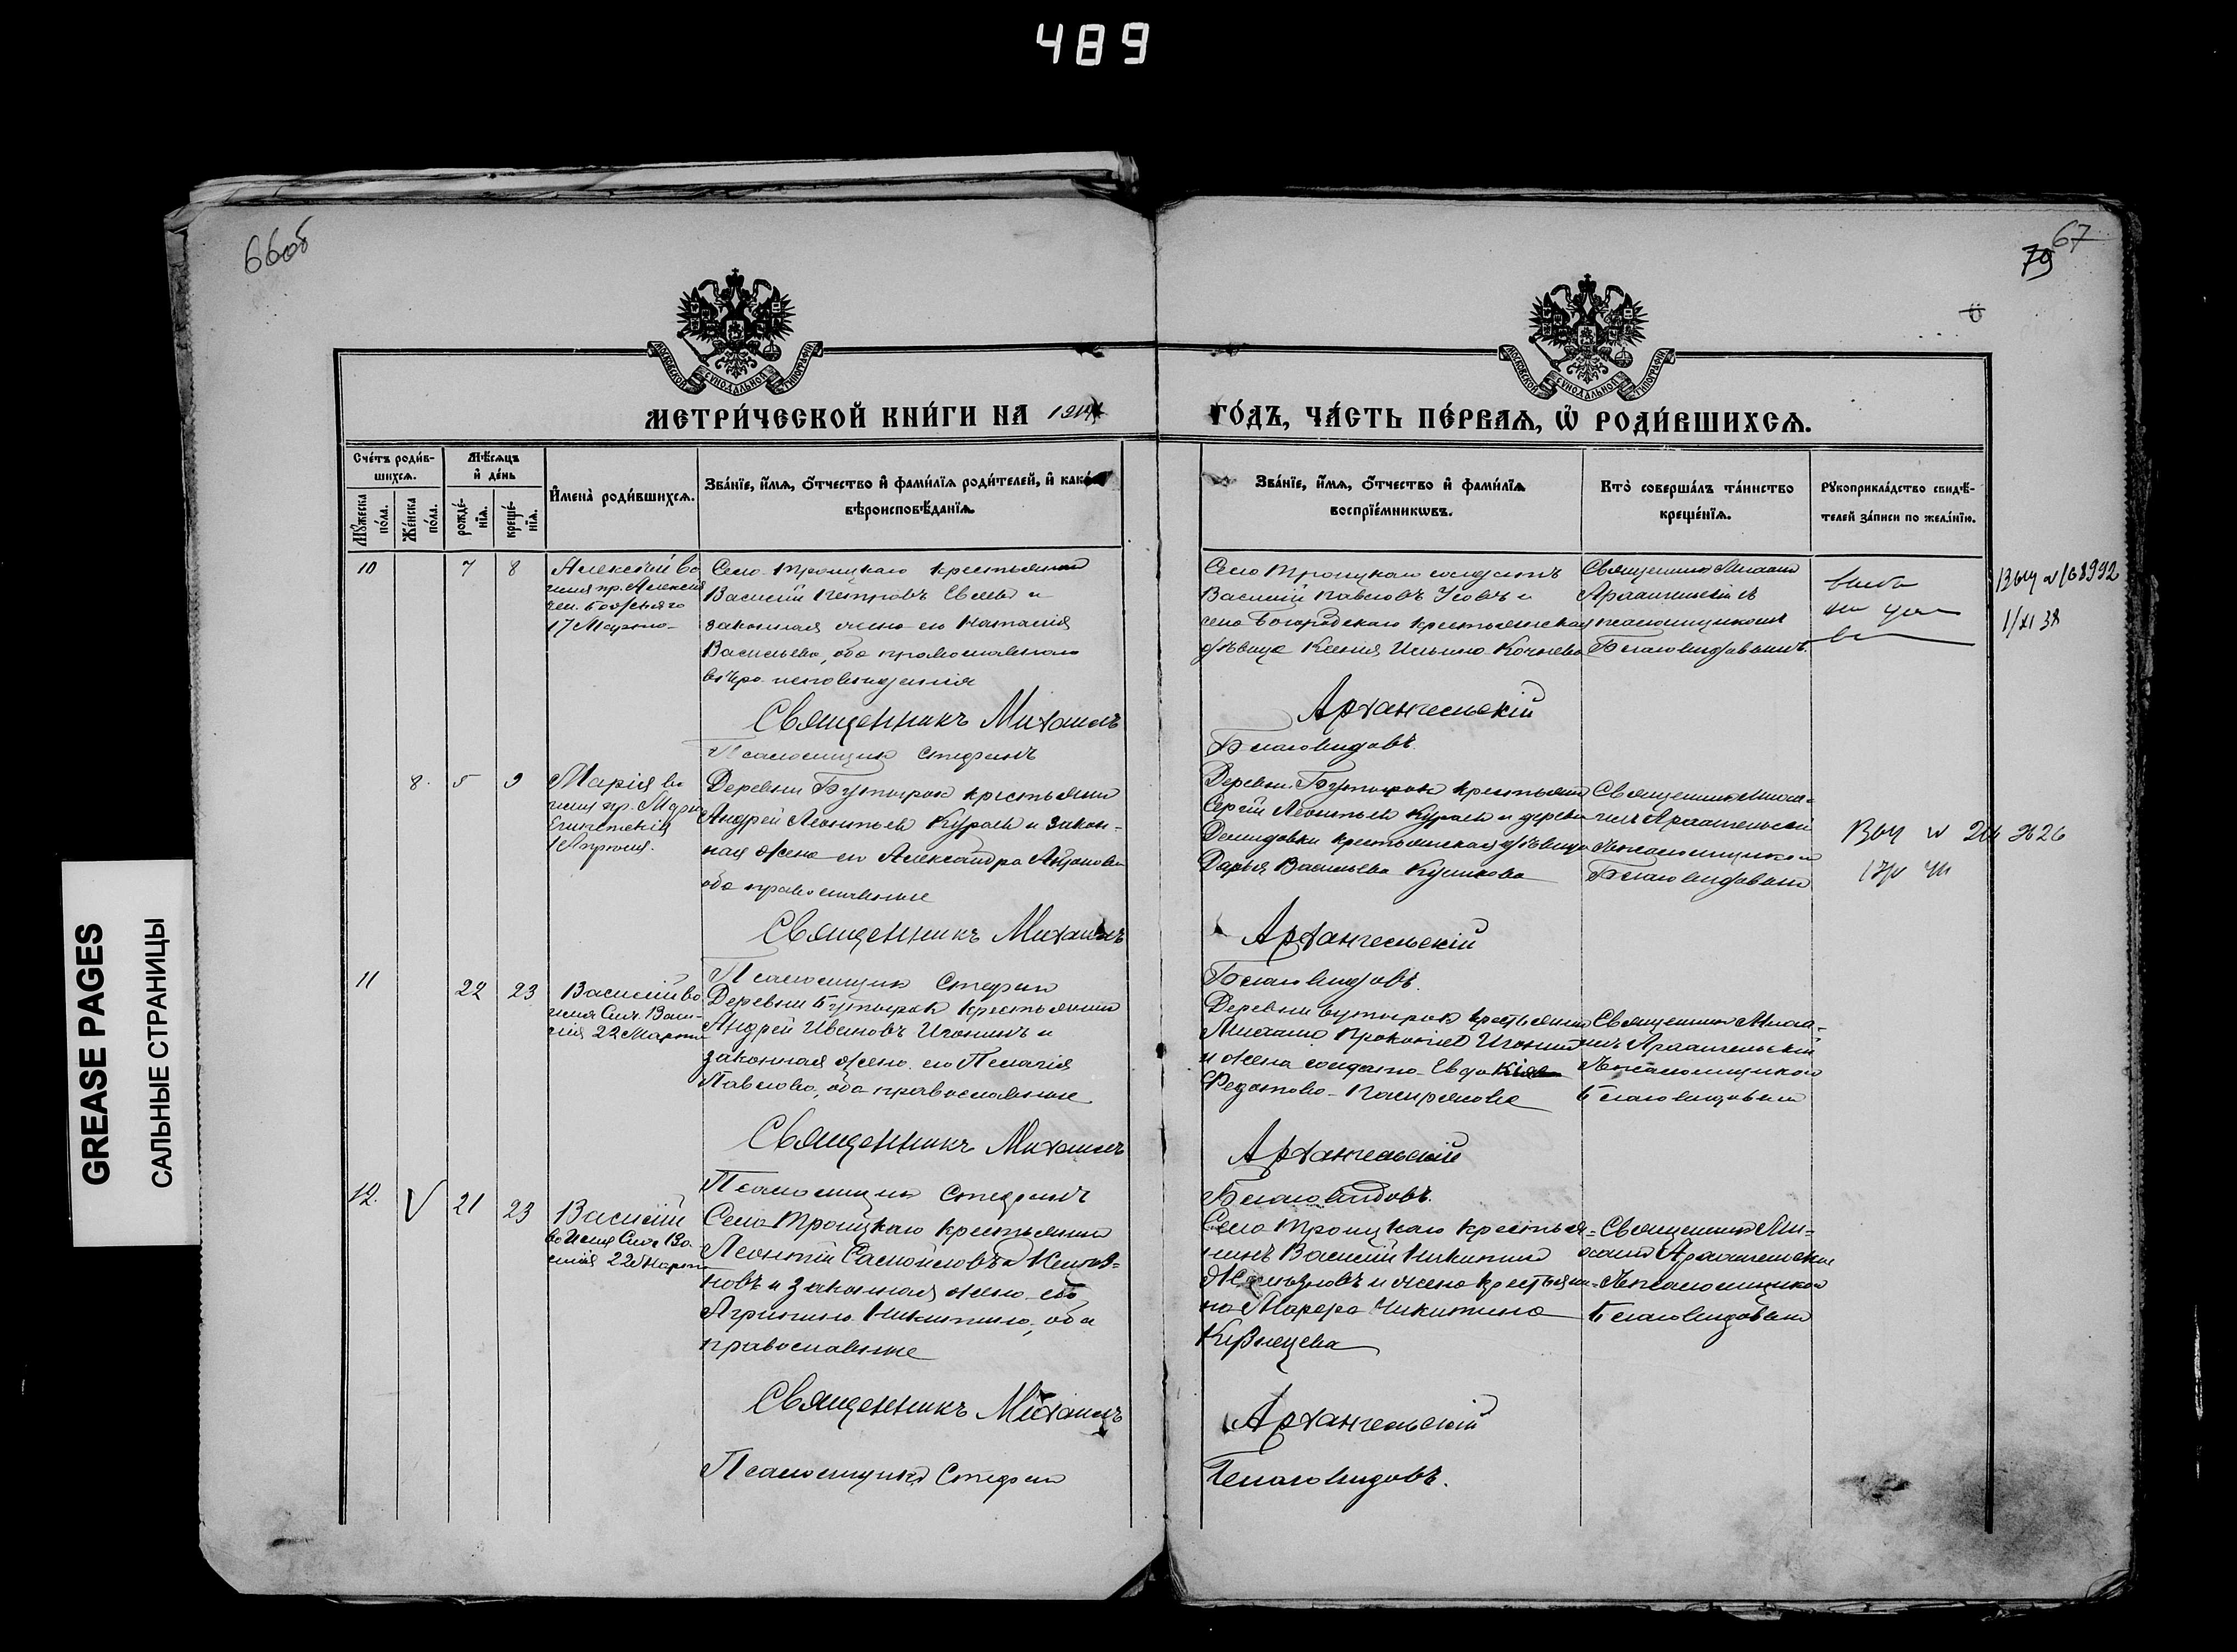 489
66об
67
79
МОСКОВСКОЙ СѴНОДАЛЬНОЙ ТИПОГРАФІИ
МОСКОВСКОЙ СѴНОДАЛЬНОЙ ТИПОГРАФІИ
МЕТРИ́ЧЕСКОЙ КНИ́ГИ НА 1914
ГО́ДЪ, ЧА́СТЬ ПЕ́РВАѦ, Ѡ҆ РОДИ́ВШИХСѦ.
Сче́тъ роди́в-
шихсѧ.
Мꙋ́жеска по́ла.
Же́нска по́ла.
Мѣ́сѧцъ
и҆ де́нь
рожде́-
нїѧ.
креще́-
нїѧ.
И҆мена̀ роди́вшихсѧ.
Зва́нїе, и҆́мѧ, ѻ҆́тчество и҆ фами́лїѧ роди́телей, и҆ како́
вѣроисповѣ́данїѧ.
Зва́нїе, и҆́мѧ, ѻ҆́тчество и҆ фами́лїѧ
воспрїе́мникѡвъ.
Кто̀ соверша́лъ та́инство
креще́нїѧ.
Рꙋкоприкла́дство свидѣ́-
телей за́писи по жела́нїю.
10 7 8
Алексѣй во
имя пр. Алексія
чел. Божьяго
17 Марта
Села Троицкаго крестьянинъ
Василій Петровъ
законная жена его Наталія
Васильева, оба православнаго
вѣроисповѣданія
Священникъ Михаилъ
Псаломщикъ Стефанъ
Села Троицкаго солдатъ
Василій Павловъ Усовъ и
села Богородскаго крестьянская
дѣвица Ксенія Ильина Кочнева
Архангельскій
Благовидовъ.
Священникъ Михаилъ
Архангельскій съ
псаломщикомъ
Благовидовымъ.
168992
1/XI 38
8. 5 9
Марія во
имя пр. Маріи
Египетскія
1 Апрѣля.
Деревни Бутырокъ крестьянинъ
Андрей Леонтьевъ Кураевъ и закон-
ная жена его Александра Антонова
оба православные
Священникъ Михаилъ
Псаломщикъ Стефанъ
Деревни Бутырокъ крестьянинъ
Сергѣй Леонтьевъ Кураевъ и деревни
Демидовки крестьянская дѣвица
Дарья Васильева Куликова
Архангельскій
Благовидовъ.
Священникъ Миха-
илъ Архангельскій
съ псаломщикомъ
Благовидовымъ
11 22 23
Василій во
имя Свм. Васи-
лія 22 Марта
Деревни Бутырокъ крестьянинъ
Андрей Ивановъ Игонинъ и
законная жена его Пелагія
Павлова, оба православные
Священникъ Михаилъ
Псаломщикъ Стефанъ
Деревни Бутырокъ крестьянинъ
Михаилъ Прокопіевъ Игонинъ
и жена солдата Евдокія
Федотова
Архангельскій
Благовидовъ.
Священникъ Миха-
илъ Архангельскій
съ псаломщикомъ
Благовидовымъ
12. V 21 23
Василій
во имя Свм. Ва-
силія 22 Марта
Села Троицкаго крестьянинъ
Леонтій
новъ и законная жена его
Агрипина Никитина, оба
православные
Священникъ Михаилъ
Псаломщикъ Стефанъ
Села Троицкаго крестья-
нинъ Василій Никитинъ
и жена крестьяни-
на Марфа Никитина
Кузнецова
Архангельскій
Благовидовъ.
Священникъ Ми-
хаилъ Архангельскій
съ псаломщикомъ
Благовидовымъ
GREASE PAGES
САЛЬНЫЕ СТРАНИЦЫ